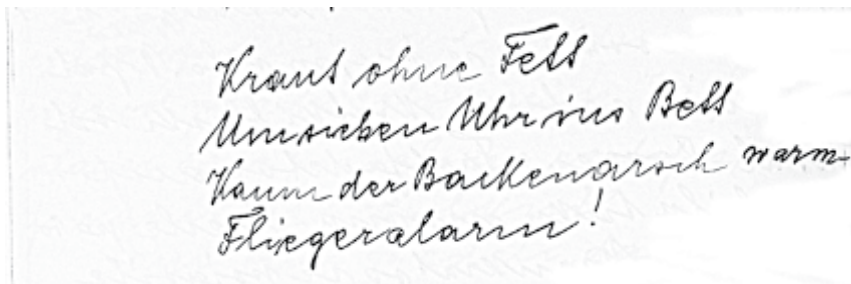 Kraut ohne Fett
Um sieben Uhr ins Bett
Kaum der Backenarsch warm
Fliegeralarm!